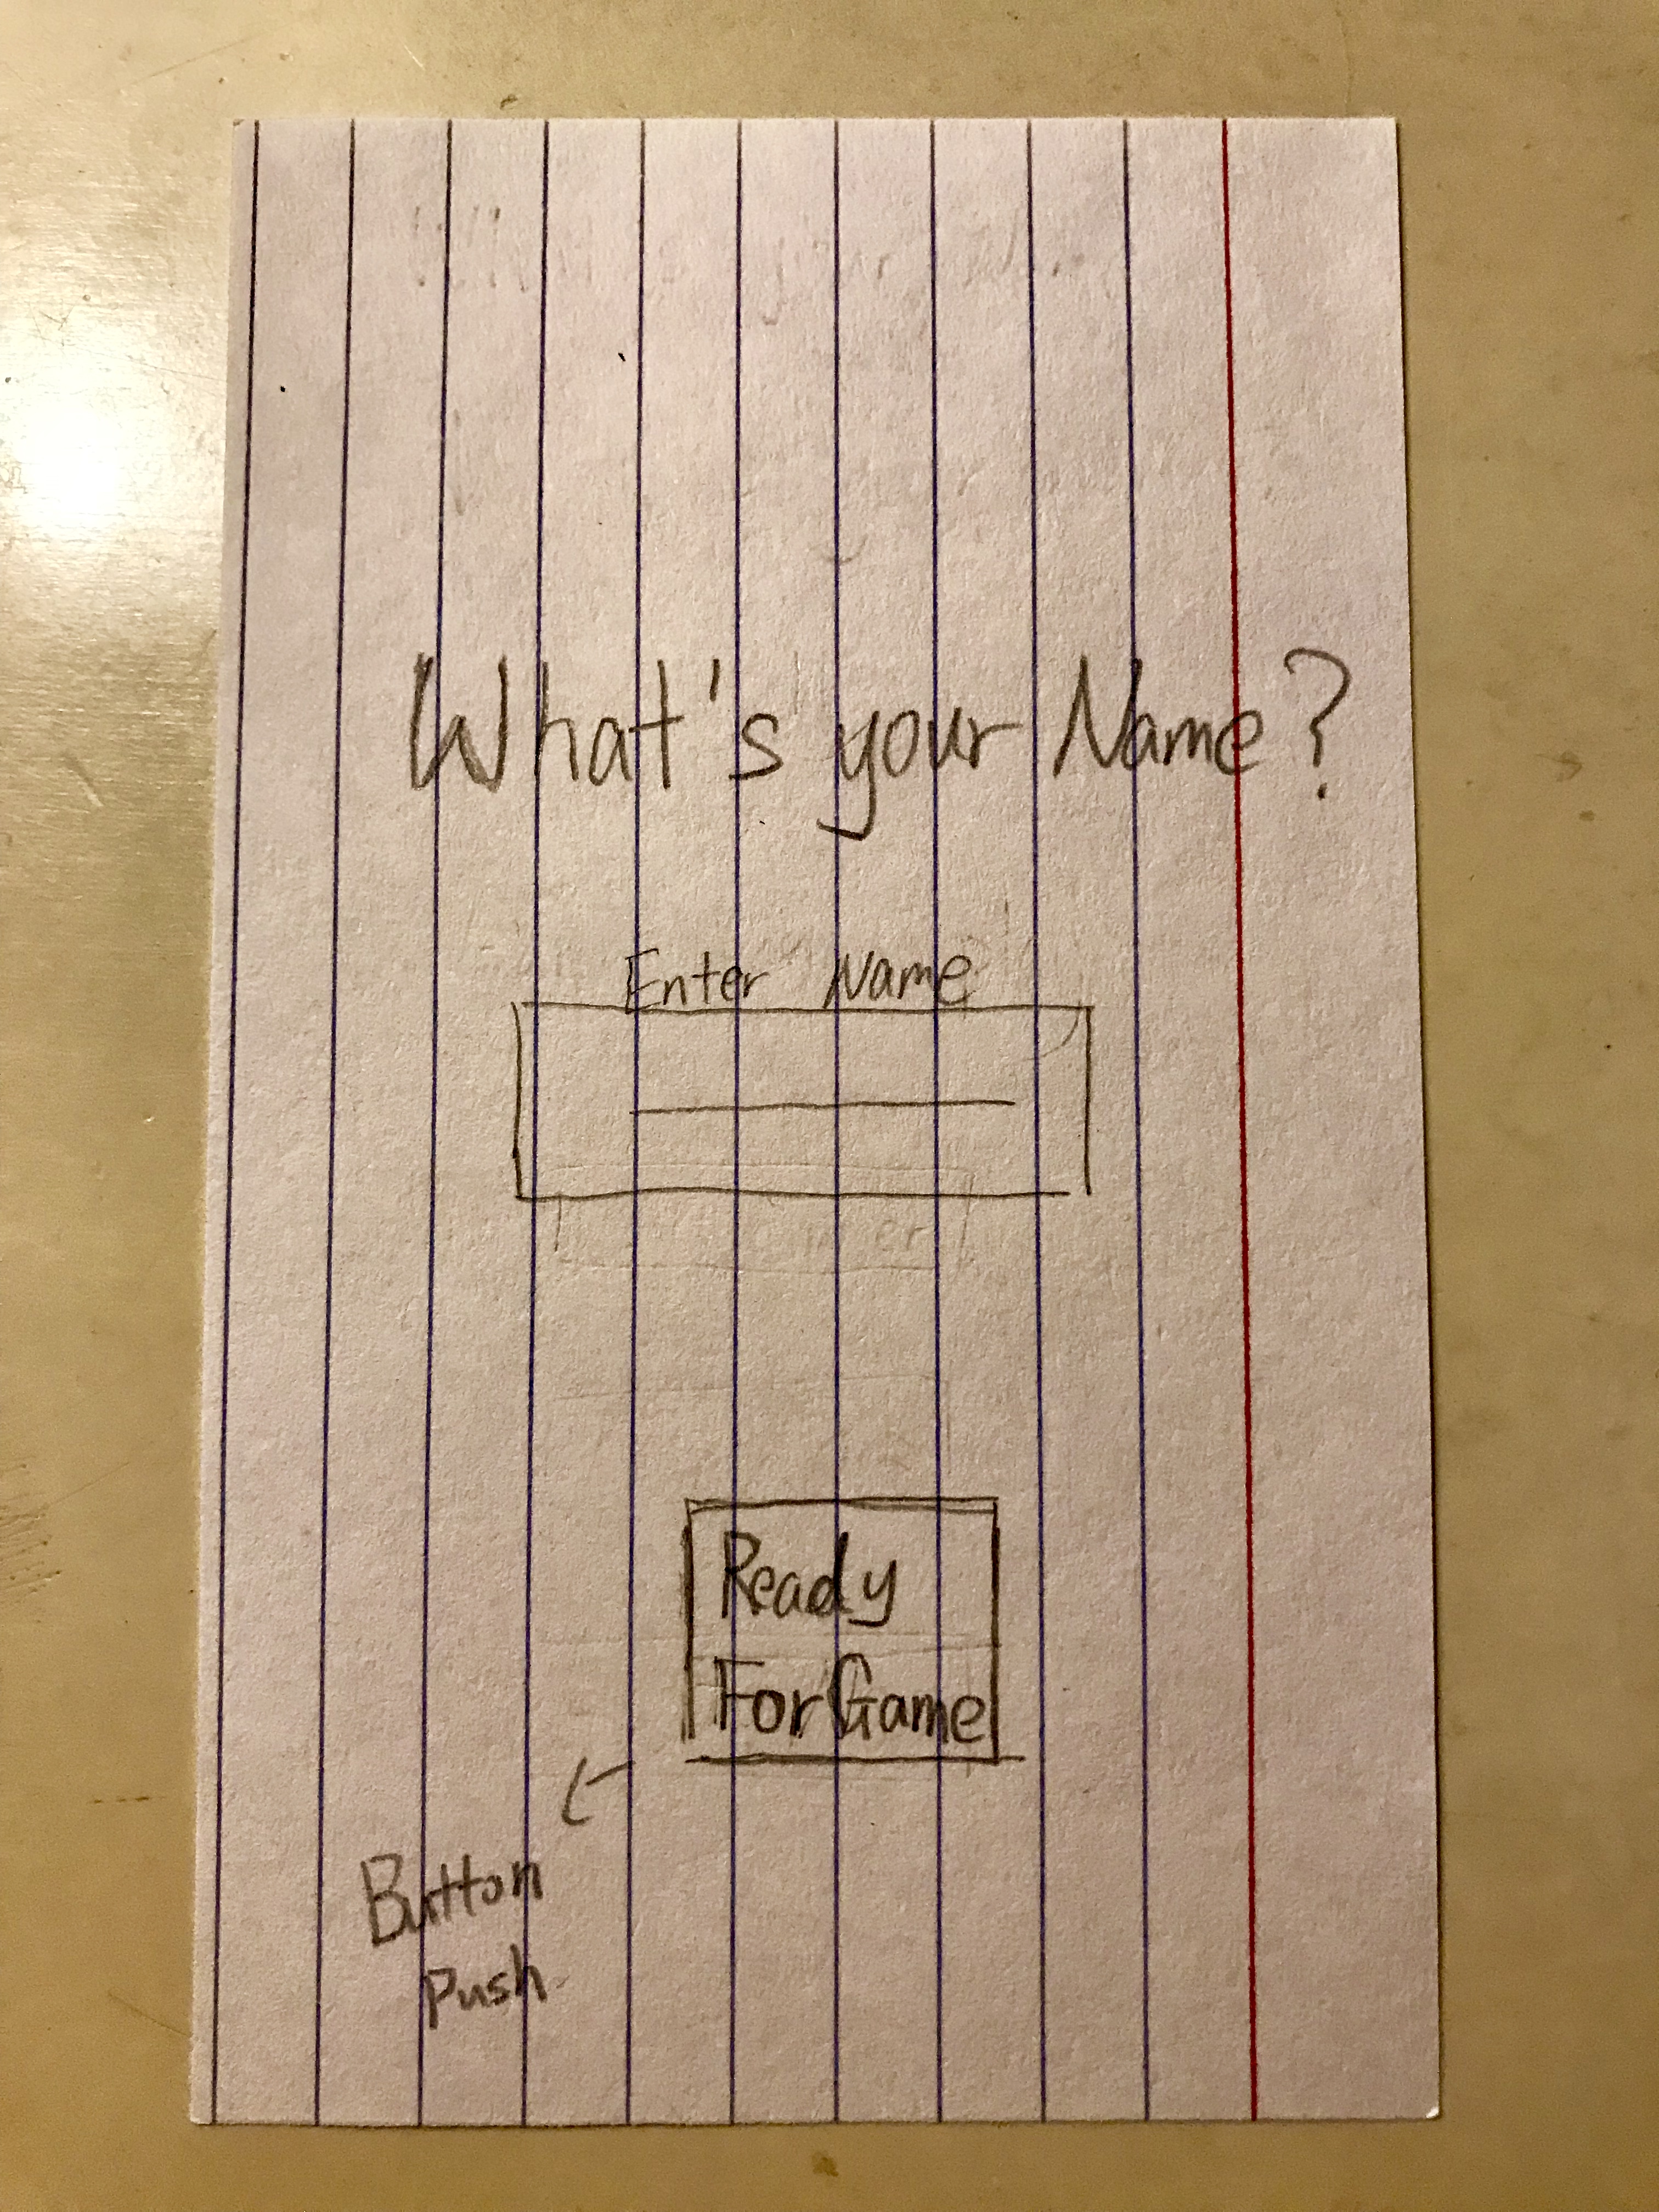 What's your Name?
Enter Name
Ready
For Game
Button
Push